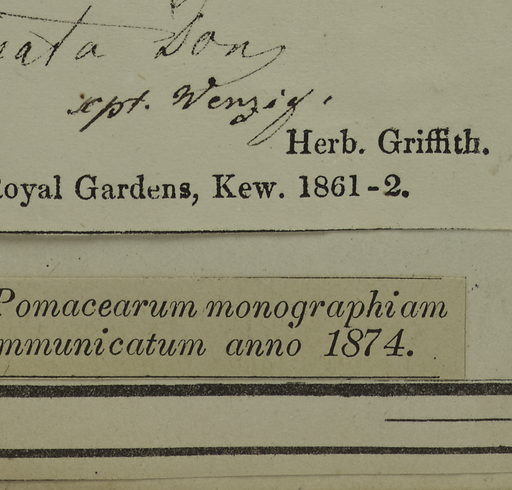 ata Don
scpt. Wenzig.
Herb. Griffith.
Royal Gardens, Kew. 1861-2.
Pomacearum monographiam
mmunicatum anno 1874.